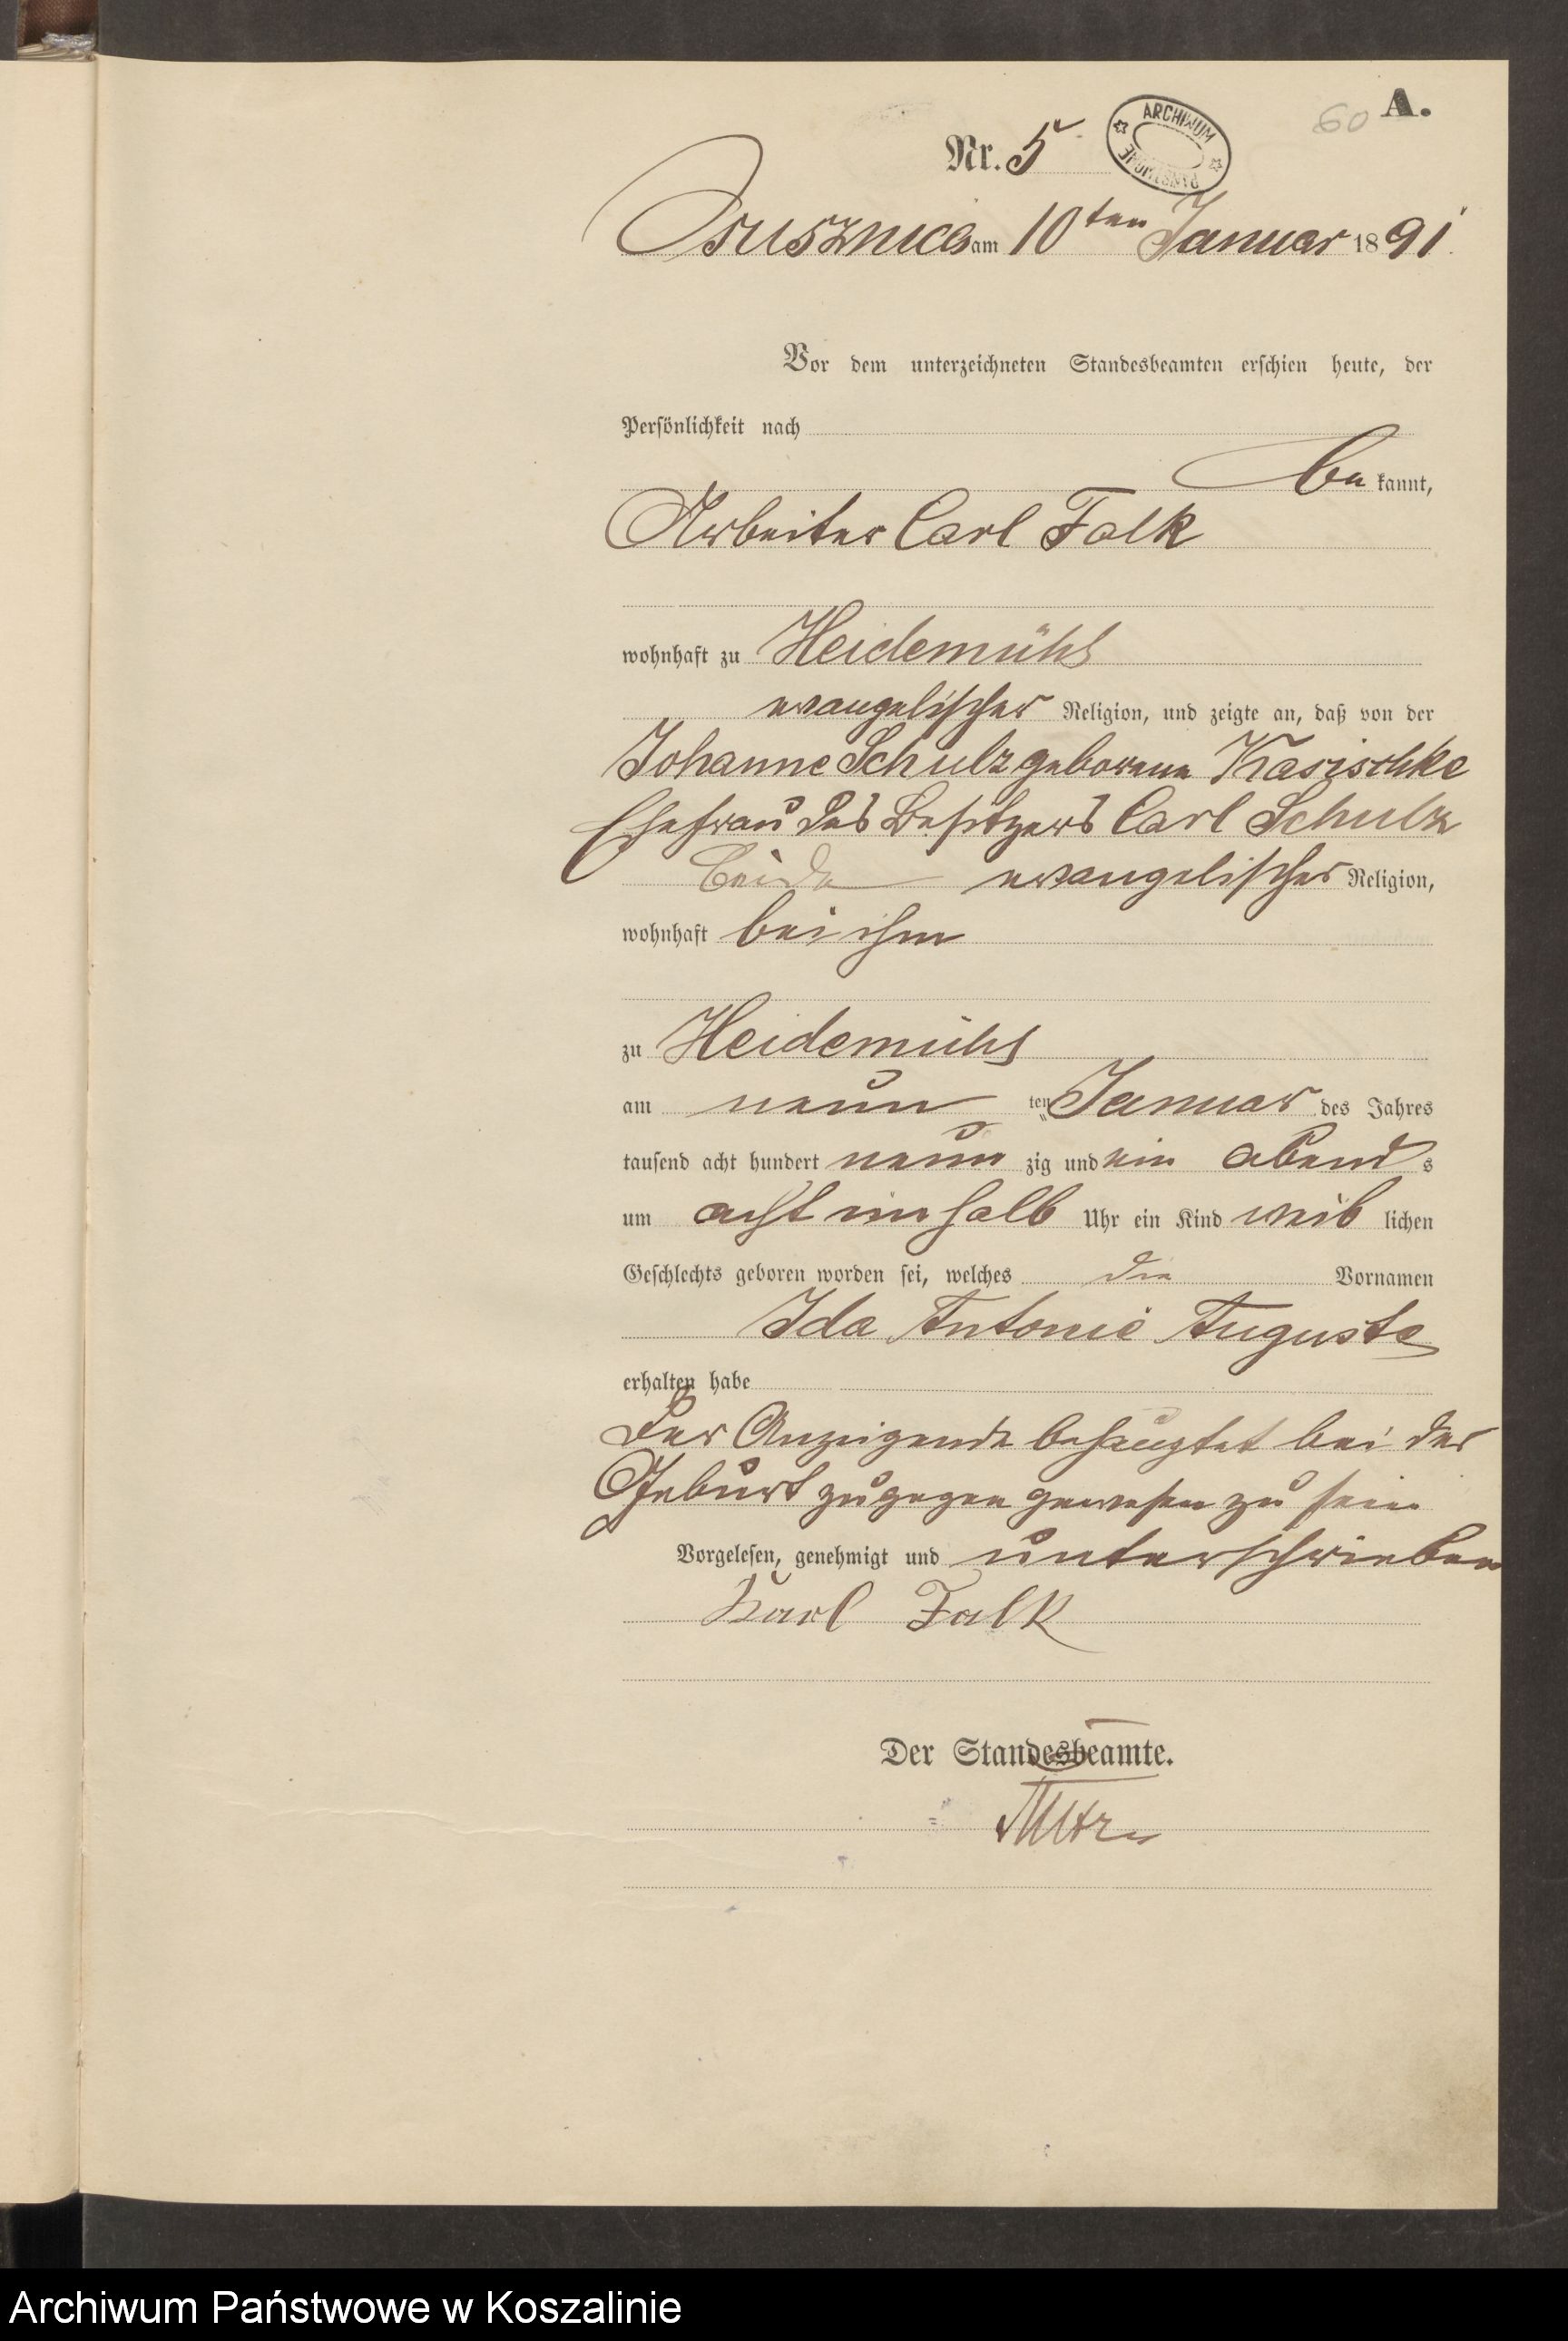 A.
60
Nr. 5
ARCHIWUM PAŃSTWOWE
Osusznica am 10ten Januar 1891
Vor dem unterzeichneten Standesbeamten erschien heute, der
Persönlichkeit nach
be kannt,
Arbeiter Carl Falk
wohnhaft zu Heidemühl
evangelischer Religion, und zeigte an, daß von der
Johanne Schulz geborene Kasischke
Ehefrau des Besitzers Carl Schulz
beide evangelischer Religion,
wohnhaft bei ihm
zu Heidemühl
am neun ten Januar des Jahres
tausend acht hundert neun zig und ein abend s
um acht einhalb Uhr ein Kind weib lichen
Geschlechts geboren worden sei, welches die Vornamen
Ida Antonie Auguste
erhalten habe
Der Anzeigende behauptet bei der
Geburt zugegen gewesen zu sein
Vorgelesen, genehmigt und unterschrieben
Karl Falk
Der Standesbeamte.
Archiwum Państwowe w Koszalinie